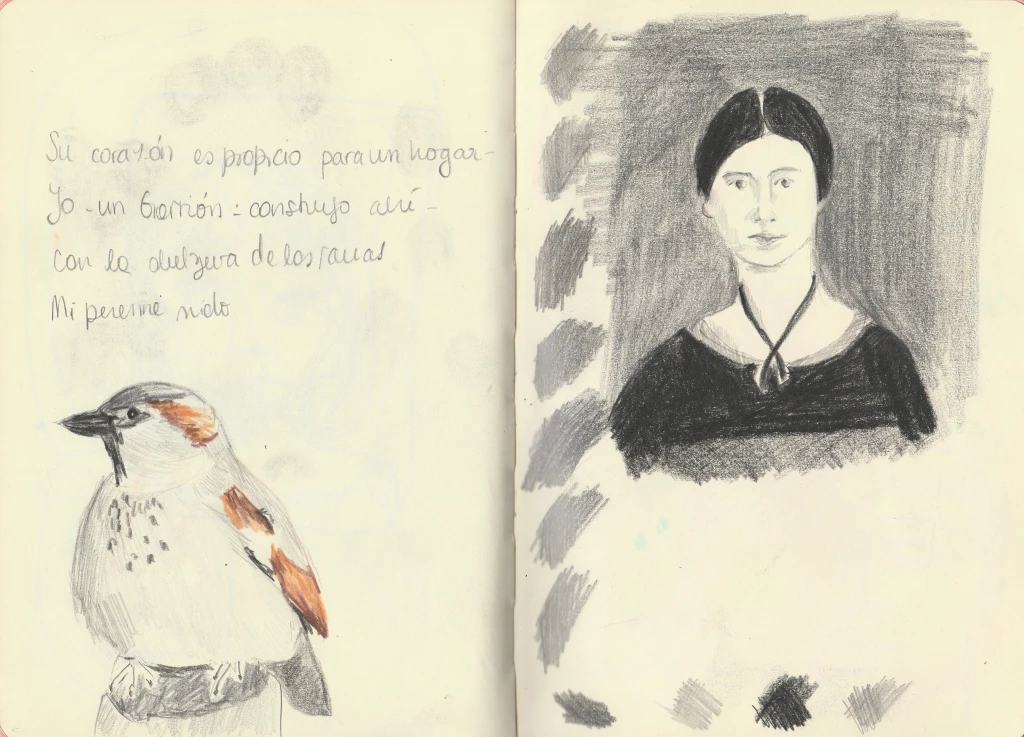 Su corazón es propicio para un hogar -
Yo - un Gorrión - construyo ahí -
Con la dulzura de las ramas
Mi perenne nido